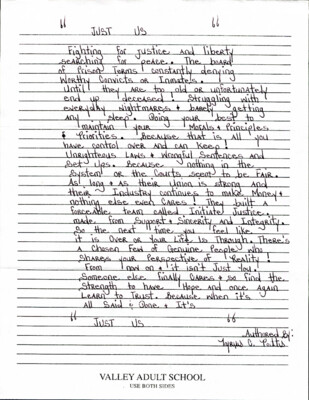 " JUST US "
Fighting for justice and liberty
searching for peace. The board
of Prison Terms! constantly denying
Worthy Convicts or Inmates.
Until they are too old or unfortunately
end up deceased! Struggling with
everyday nightmares & barely getting
any sleep. Doing your best to
maintain your Morals & Principles
& Priorities. Because that is all you
have control over and can Keep!
Unrighteous Laws & Wrongful Sentences and
Set Ups. Because nothing in the
System or the Courts seem to be FAIR.
As long as their Union is strong and
their Industry continues to make Money &
nothing else even Cares! They built a
forceable team called Initiate Justice,
made from Support & Sincerity and Integrity.
So the next time you feel like
it is Over or Your Life is Through, There's
a Chosen Few of Genuine People who
Shares your Perspective of Reality!
From now on & it isn't Just You,
Someone else finally Cares & so find the
Strength to have Hope and once again
Learn to Trust. Because when it's
All Said & Done & It's
" JUST US "
Authored By:
VALLEY ADULT SCHOOL
USE BOTH SIDES